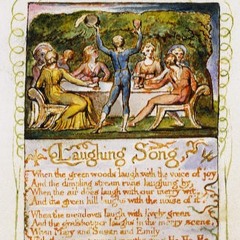 Laughing Song,
When the green woods laugh with the voice of joy
And the dimpling stream runs laughing by,
When the air does laugh with our merry wit,
And the green hill laughs with the noise of it.
When the meadows laugh with lively green
And the grasshopper laughs in the merry scene,
When Mary and Susan and Emily